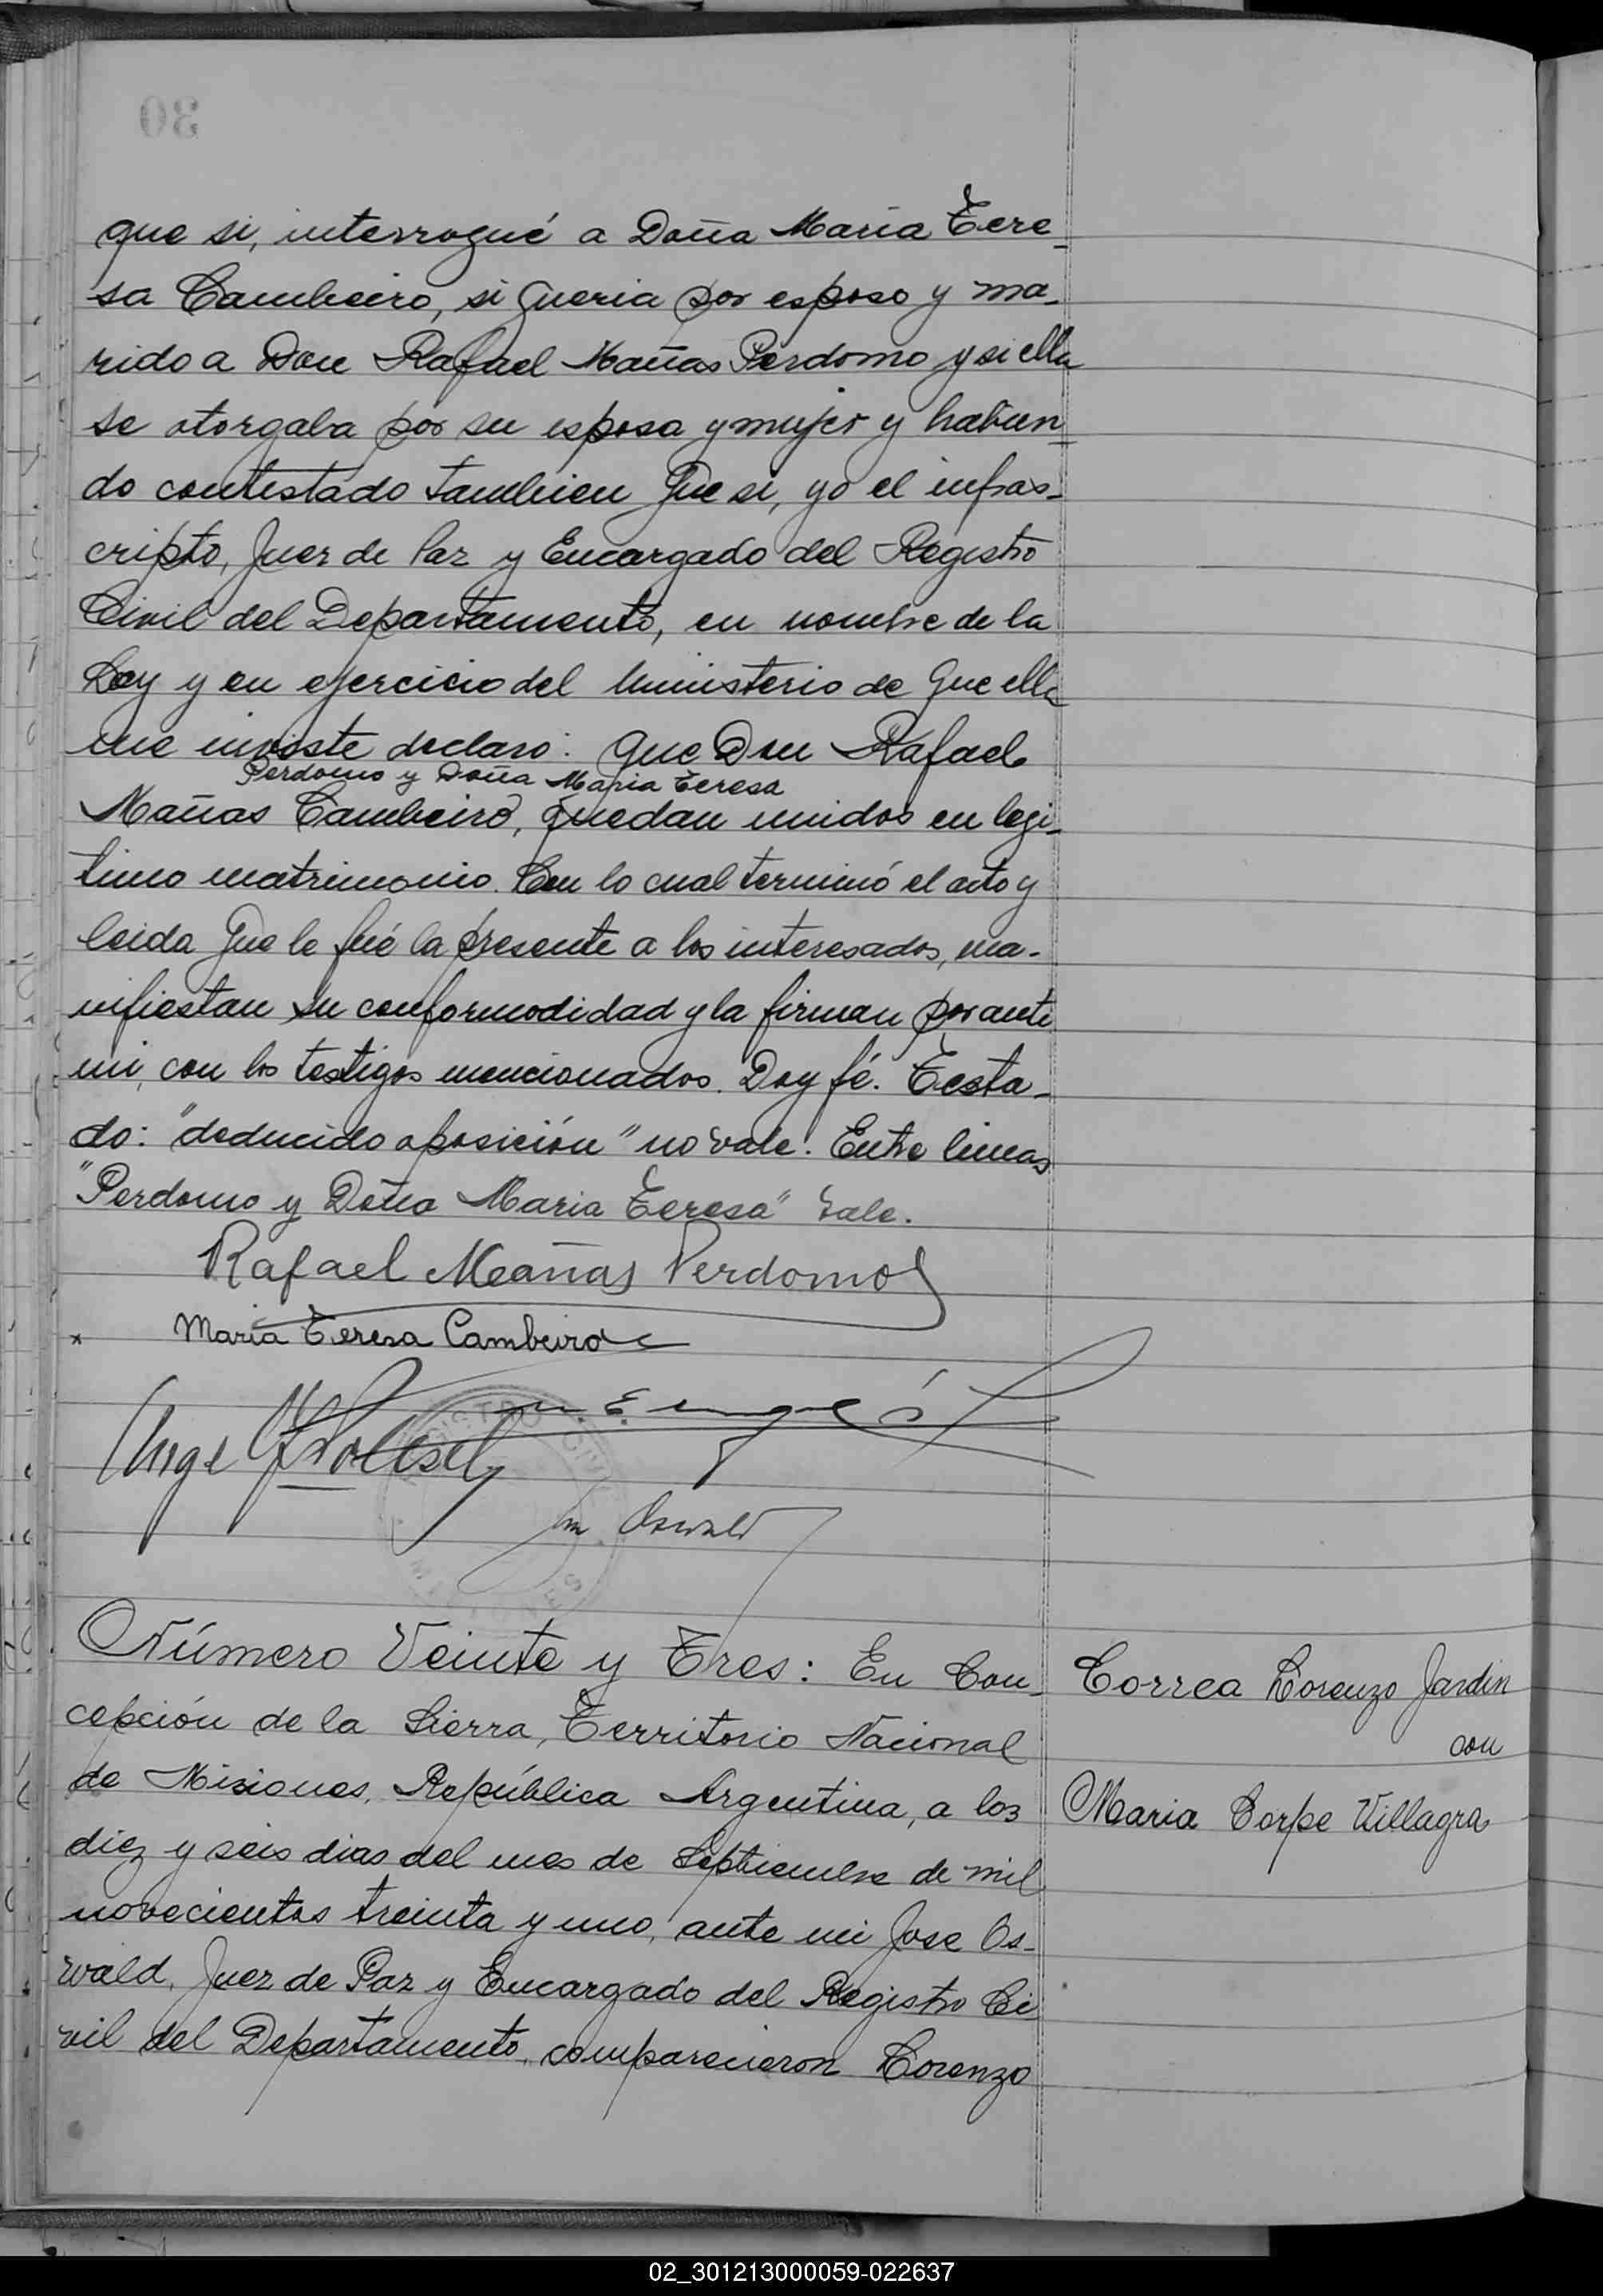 30
que si, interrogué a Doña Maria Tere-
sa Cambeiro, si queria por esposo y ma-
rido a Don Rafael Mañas Perdomo y si ella
se otorgaba por su esposa y mujer y habien-
do contestado tambien que si, yo el infras-
cripto, Juez de Paz y Encargado del Registro
Civil del Departamento, en nombre de la
Ley y en ejercicio del ministerio de que ella
me inviste declaro: que Don Rafael
Perdomo y Doña Maria Teresa
Mañas Cambeiro, quedan unidos en legi-
timo matrimonio. Con lo cual terminó el acto y
leida que le fué la presente a los interesados, ma-
nifiestan su conformodidad y la firman por ante
mi, con los testigos mencionados. Doy fé. Testa-
do: "deducido oposición" no vale. Entre lineas
"Perdomo y Doña Maria Teresa" Vale.
Rafael Mañas Perdomo
x Maria Teresa Cambeiro
REGISTRO CIVIL
MISIONES
Oswald
Número Veinte y Tres: En Con-
cepción de la Sierra, Territorio Nacional
de Misiones, República Argentina, a los
diez y seis dias del mes de Septiembre de mil
novecientos treinta y uno, ante mi Jose Os-
wald, Juez de Paz y Encargado del Registro Ci
vil del Departamento, comparecieron Lorenzo
Correa Lorenzo Jardin
con
Maria Corpe Villagra
02_301213000059-022637